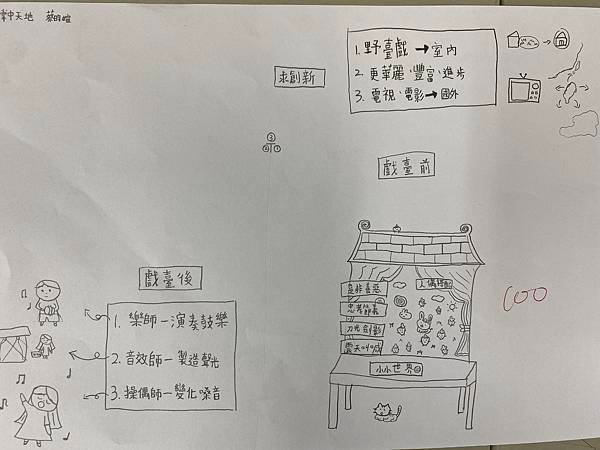 掌中天地 蔡昀暄
求創新
1. 野臺戲→室內
2. 更華麗、豐富、進步
3. 電視、電影→國外
③
② ①
戲臺前
是非善惡
忠孝節義
刀光劍影
小小世界
戲臺後
1. 樂師－演奏鼓樂
2. 音效師－製造聲光
3. 操偶師－變化嗓音
100